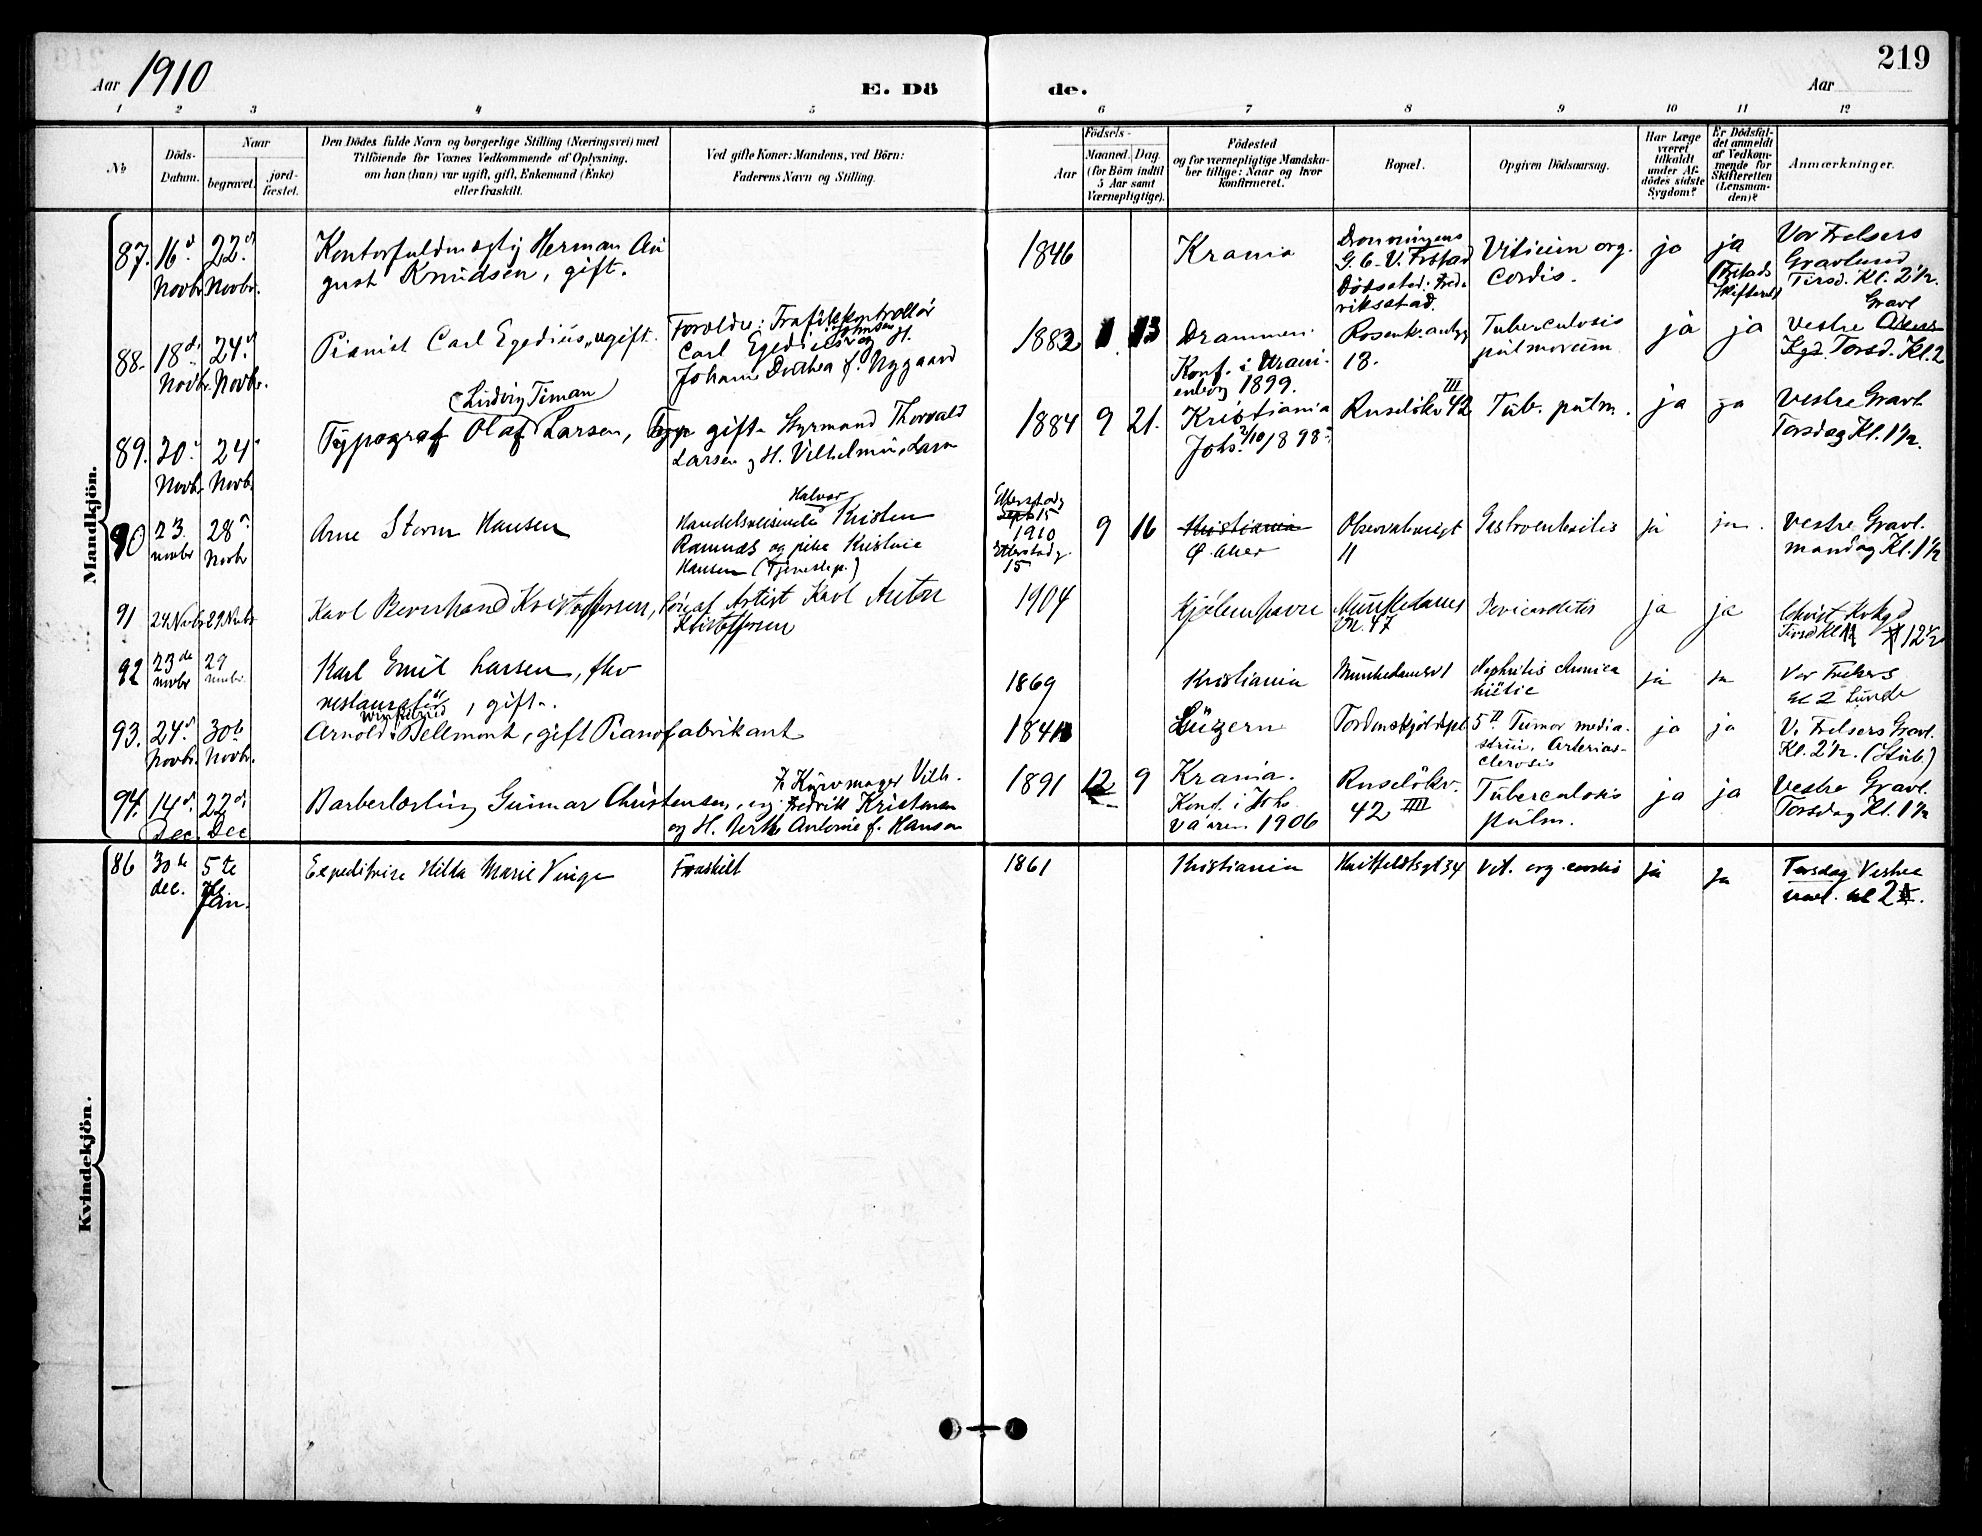 219
Aar 1910
E. Dö
de.
Aar
1 2 3 4 5 6 7 8 9 10 11 12
No
Döds-
Datum.
Naar
begravet.
jord-
fæstet.
Den Dödes fulde Navn og borgerlige Stilling (Næringsvei) med
Tilföiende for Voxnes Vedkommende af Oplysning,
om han (hun) var ugift, gift, Enkemand (Enke)
eller fraskilt.
Ved gifte Koner: Mandens, ved Börn:
Faderens Navn og Stilling.
Födsels-
Aar
Maaned. Dag.
(for Börn indtil
5 Aar samt
Værnepligtige).
Födested
og for værnepligtige Mandska-
ber tillige: Naar og hvor
konfirmeret.
Bopæl.
Opgiven Dödsaarsag.
Har Læge
været
tilkaldt
under Af-
dödes sidste
Sygdom?
Er Dödsfal-
det anmeldt
af Vedkom-
mende for
Skifteretten
(Lensman-
den)?
Anmærkninger.
Mandkjön.
87.
16d
Novbr
22d
Novbr.
Kontorfuldmægtig Herman Au
gust Knudsen, gift.
1846
Krania
Dronningens
G. 6. V. Frstad
Dödsstad: Fred-
riksstad.
Vitium org.
Cordis.
ja
ja
(Frstads
Skifteret)
Vor Frelsers
Gravlund
Tirsd. Kl. 2½.
88.
18d
Novbr.
24d
Novbr.
Pianist Carl Egedius, ugift.
Forældre: Trafikkontrollør
Carl Egedius Johnsen og H.
Johanne Dorthea f. Nygaard
1882 1 13
Drammen.
Konf. i Uranienborg 1899.
Rosenkrantzg
18.
Tuberculosis
pulmonum
ja
ja
Gravl
Vestre Akers
Kgd. Torsd. Kl. 2
89.
20d
Novbr.
24d
Novbr.
Ludvig Timan
Typograf Olaf Larsen,
gift. Styrmand Thorvald
Larsen og H. Vilhelmine Larsen
1884 9 21.
Kristiania
Johs. 2/10 1898
Ruselökv 42 III
Tub. pulm.
ja
ja
Vestre Gravl.
Torsdag Kl. 1½.
90
23.
novbr
28d
Novbr
Arne Storm Hansen
Halvor
Handelsreisende Kristen
Ramnæs og pike Kristine
Hansen (Tjenestep.)
Etterstadg
Sept 15
1910
Etterstadg.
15
9 16
Kristiania
Ø. Aker
Observatoriegt
11
Gastroenteritis
ja
ja.
Vestre Gravl.
mandag Kl. 1½
91
24 Novbr
29 Novbr
Karl Bernhard Kristoffersen, sön af Artist Karl Anton
Kristoffersen
1904
Kjöbenhavn
Munkedams
v. 47
Pericarditis
ja
ja
Tirsd Kl 12½
92
23de
novbr
29
novbr.
Karl Emil Larsen, fhv
restauratör, gift.
1869
Kristiania
Munkedamsv 1
Nephritis chronica
ja
ja
Vor Frelsers
kl 2 Lunde
93.
24d
Novbr.
30te
Novbr.
Winkelried
Arnold Bellmont, gift Pianofabrikant
1841
Luzern
Tordenskjoldspl.
5 II
Tumor media-
stini. Arterios-
clerosis
ja
ja
V. Frelsers Gravl.
Kl. 2½. (Stub.)
94.
14d
Dec.
22d
Dec
Barberlærling Gunnar Christensen, ug.
F. Kurvmager Vilh.
Fredrik Kristensen
og H. Berthe Antonie f. Hansen
1891 12 9
Krania.
Konf. i Johs.
vaaren 1906
Ruselökv.
42 IIII
Tuberculosis
pulm.
ja
ja
Vestre Gravl.
Torsdag Kl. 1½
Kvindekjön.
86
30te
dec.
5te
Jan.
Expeditrice Hilda Marie Vinge
Fraskilt
1861
Kristiania
Huitfeldtsgt 34
Vit. org. cordis
ja
ja
Torsdag Vestre
Gravl. kl 2.